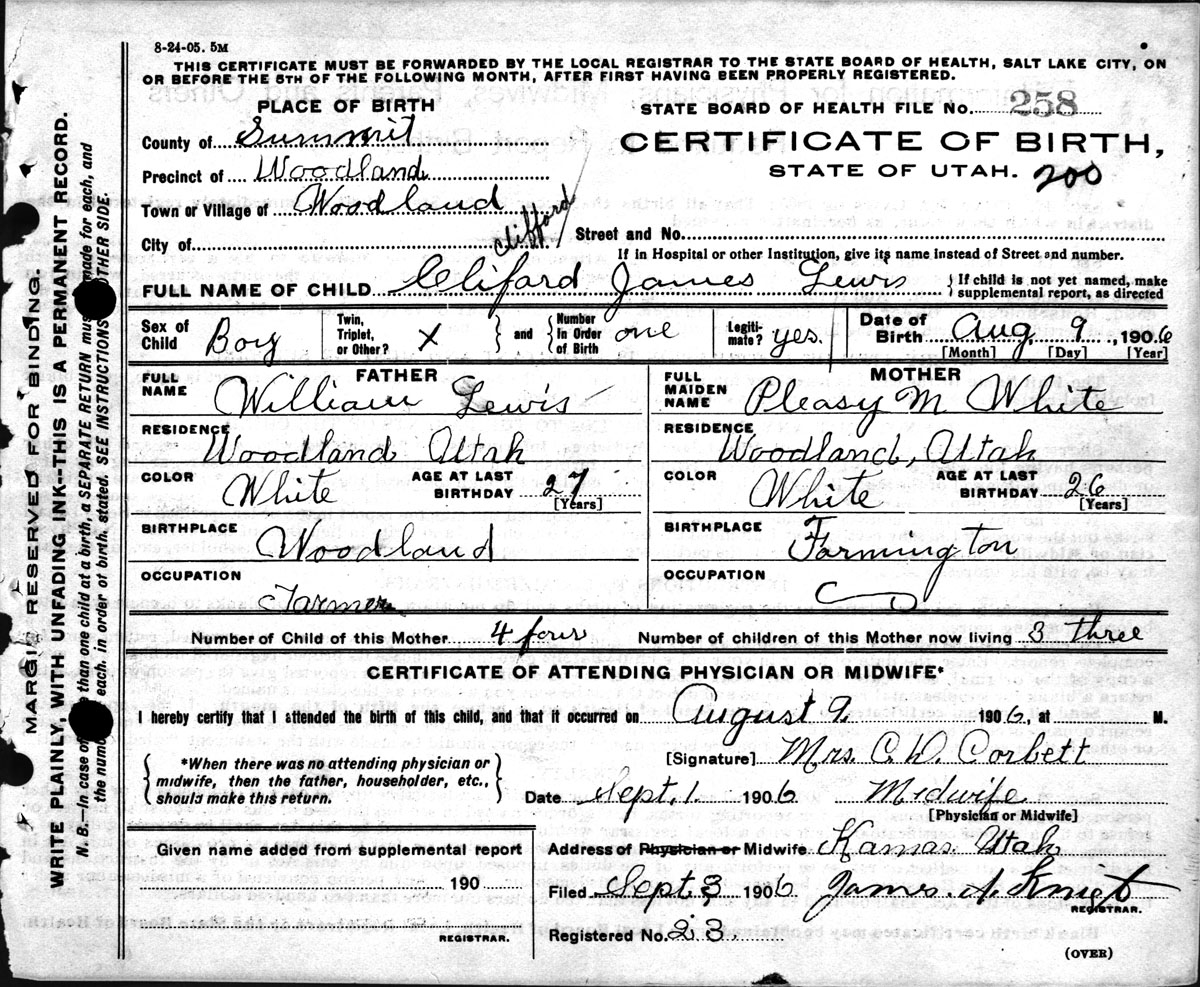 8-24-05. 5M
THIS CERTIFICATE MUST BE FORWARDED BY THE LOCAL REGISTRAR TO THE STATE BOARD OF HEALTH, SALT LAKE CITY, ON
OR BEFORE THE 5TH OF THE FOLLOWING MONTH, AFTER FIRST HAVING BEEN PROPERLY REGISTERED.
PLACE OF BIRTH
STATE BOARD OF HEALTH FILE No. 258
County of Summit
CERTIFICATE OF BIRTH,
STATE OF UTAH. 200
Precinct of Woodland
Town or Village of Woodland
City of
Clifford
Street and No.
If in Hospital or other Institution, give its name instead of Street and number.
FULL NAME OF CHILD Cliford James Lewis { If child is not yet named, make
supplemental report, as directed
Sex of Child Boy Twin, Triplet, or Other? X } and { Number In Order of Birth one Legiti-mate? yes. Date of Birth Aug 9, 1906
[Month] [Day] [Year]
FATHER
MOTHER
FULL NAME William Lewis
FULL MAIDEN NAME Pleasy M White
RESIDENCE Woodland Utah
RESIDENCE Woodland, Utah
COLOR White AGE AT LAST BIRTHDAY 27 [Years]
COLOR White AGE AT LAST BIRTHDAY 26 [Years]
BIRTHPLACE Woodland
BIRTHPLACE Farmington
OCCUPATION Farmer
OCCUPATION
Number of Child of this Mother 4 four Number of children of this Mother now living 3 three
CERTIFICATE OF ATTENDING PHYSICIAN OR MIDWIFE*
I hereby certify that I attended the birth of this child, and that it occurred on August 9 1906, at M.
{ *When there was no attending physician or
midwife, then the father, householder, etc.,
should make this return. }
[Signature] Mrs. C. D. Corbett
Date Sept. 1. 1906 Midwife
[Physician or Midwife]
Given name added from supplemental report
190
REGISTRAR.
Address of Physician or Midwife Kamas. Utah
Filed Sept. 3 1906 James.
REGISTRAR.
Registered No. 23.
(OVER)
MARGIN RESERVED FOR BINDING.
WRITE PLAINLY, WITH UNFADING INK--THIS IS A PERMANENT RECORD.
N. B.—In case of than one child at a birth, a SEPARATE RETURN made for each, and
the number each, in order of birth, stated. SEE INSTRUCTIONS OTHER SIDE.